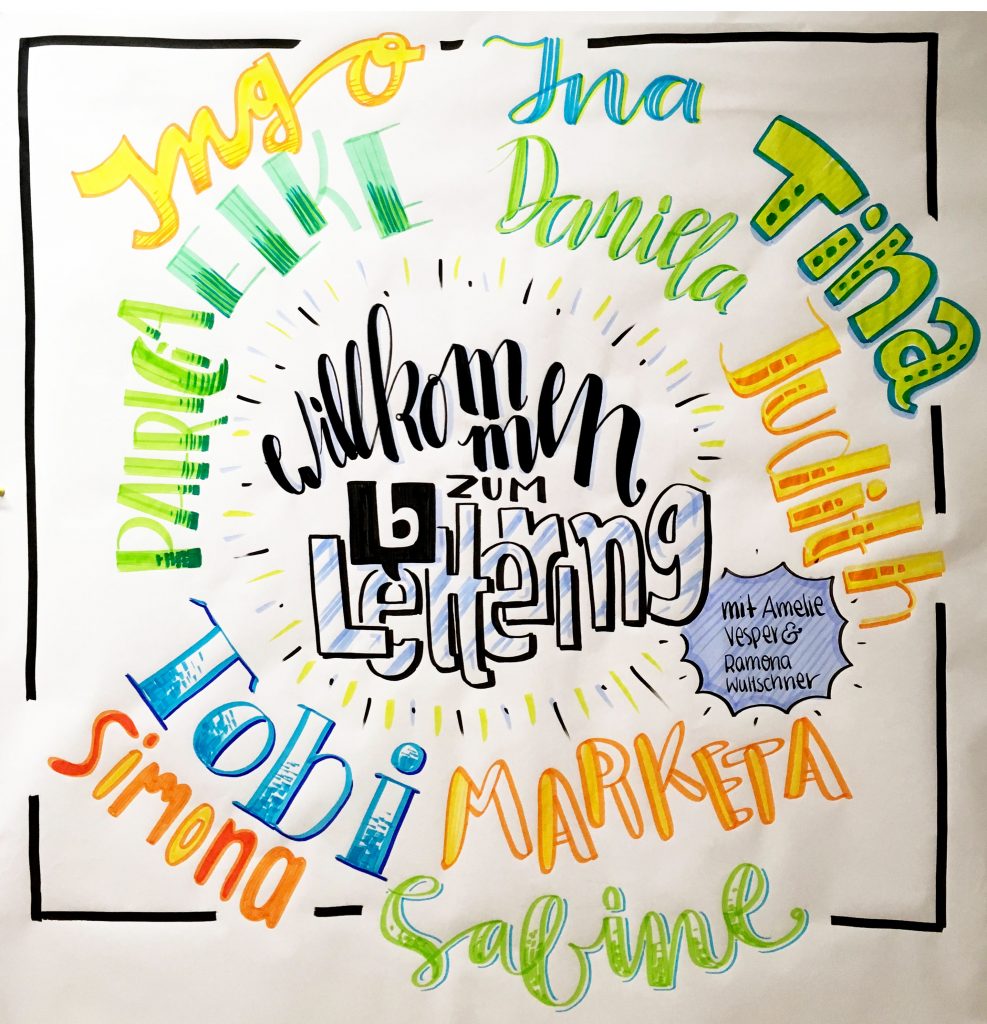 Ingo
EIKE
Ina
Daniela
Tina
Judith
PATRICIA
Willkommen
ZUM
b
Lettering
mit Amelie
Vesper &
Ramona
Wultschner
Tobi
Simona
MARKETA
Sabine